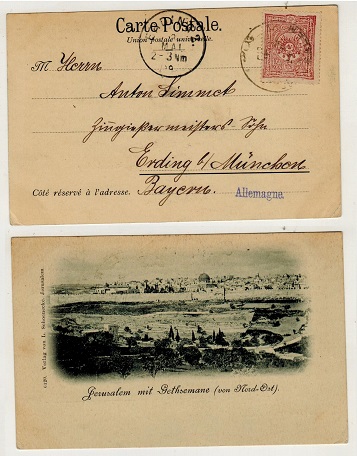 Carte Postale.
Union postale universelle.
MAI
2-3 Nm
M. Herrn
Anton Simmet
Zinngießermeisters-Sohn
Erding b/ München
Bayern.
Côté réservé à l'adresse.
Allemagne
Verlag von Jerusalem.
Jerusalem mit Gethsemane (von Nord-Ost).